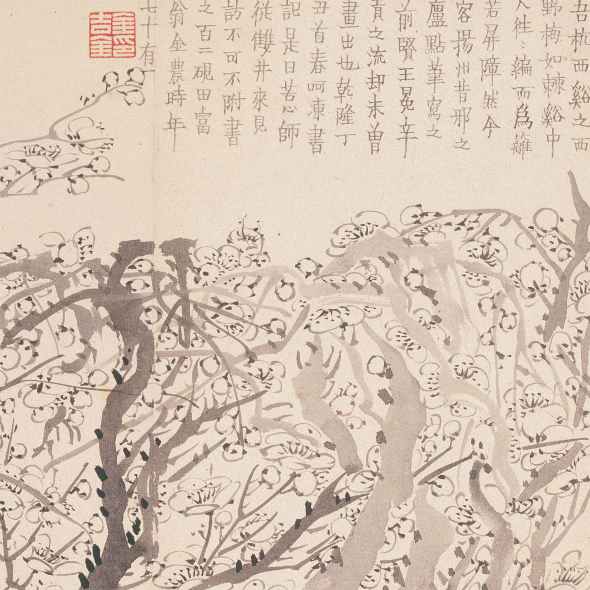 吾杭西谿之西
野梅如棘谿中
人往〻編而爲籬
若屏障然今
客揚州昔邪之
廬點筆寫之
前賢王冕辛
貢之流却未曾
畫出也乾隆丁
丑首春呵凍書
記是日苦心師
從雙井來見
訪不可不附書
之百二硯田富
翁金農時年
七十有
金印
吉金